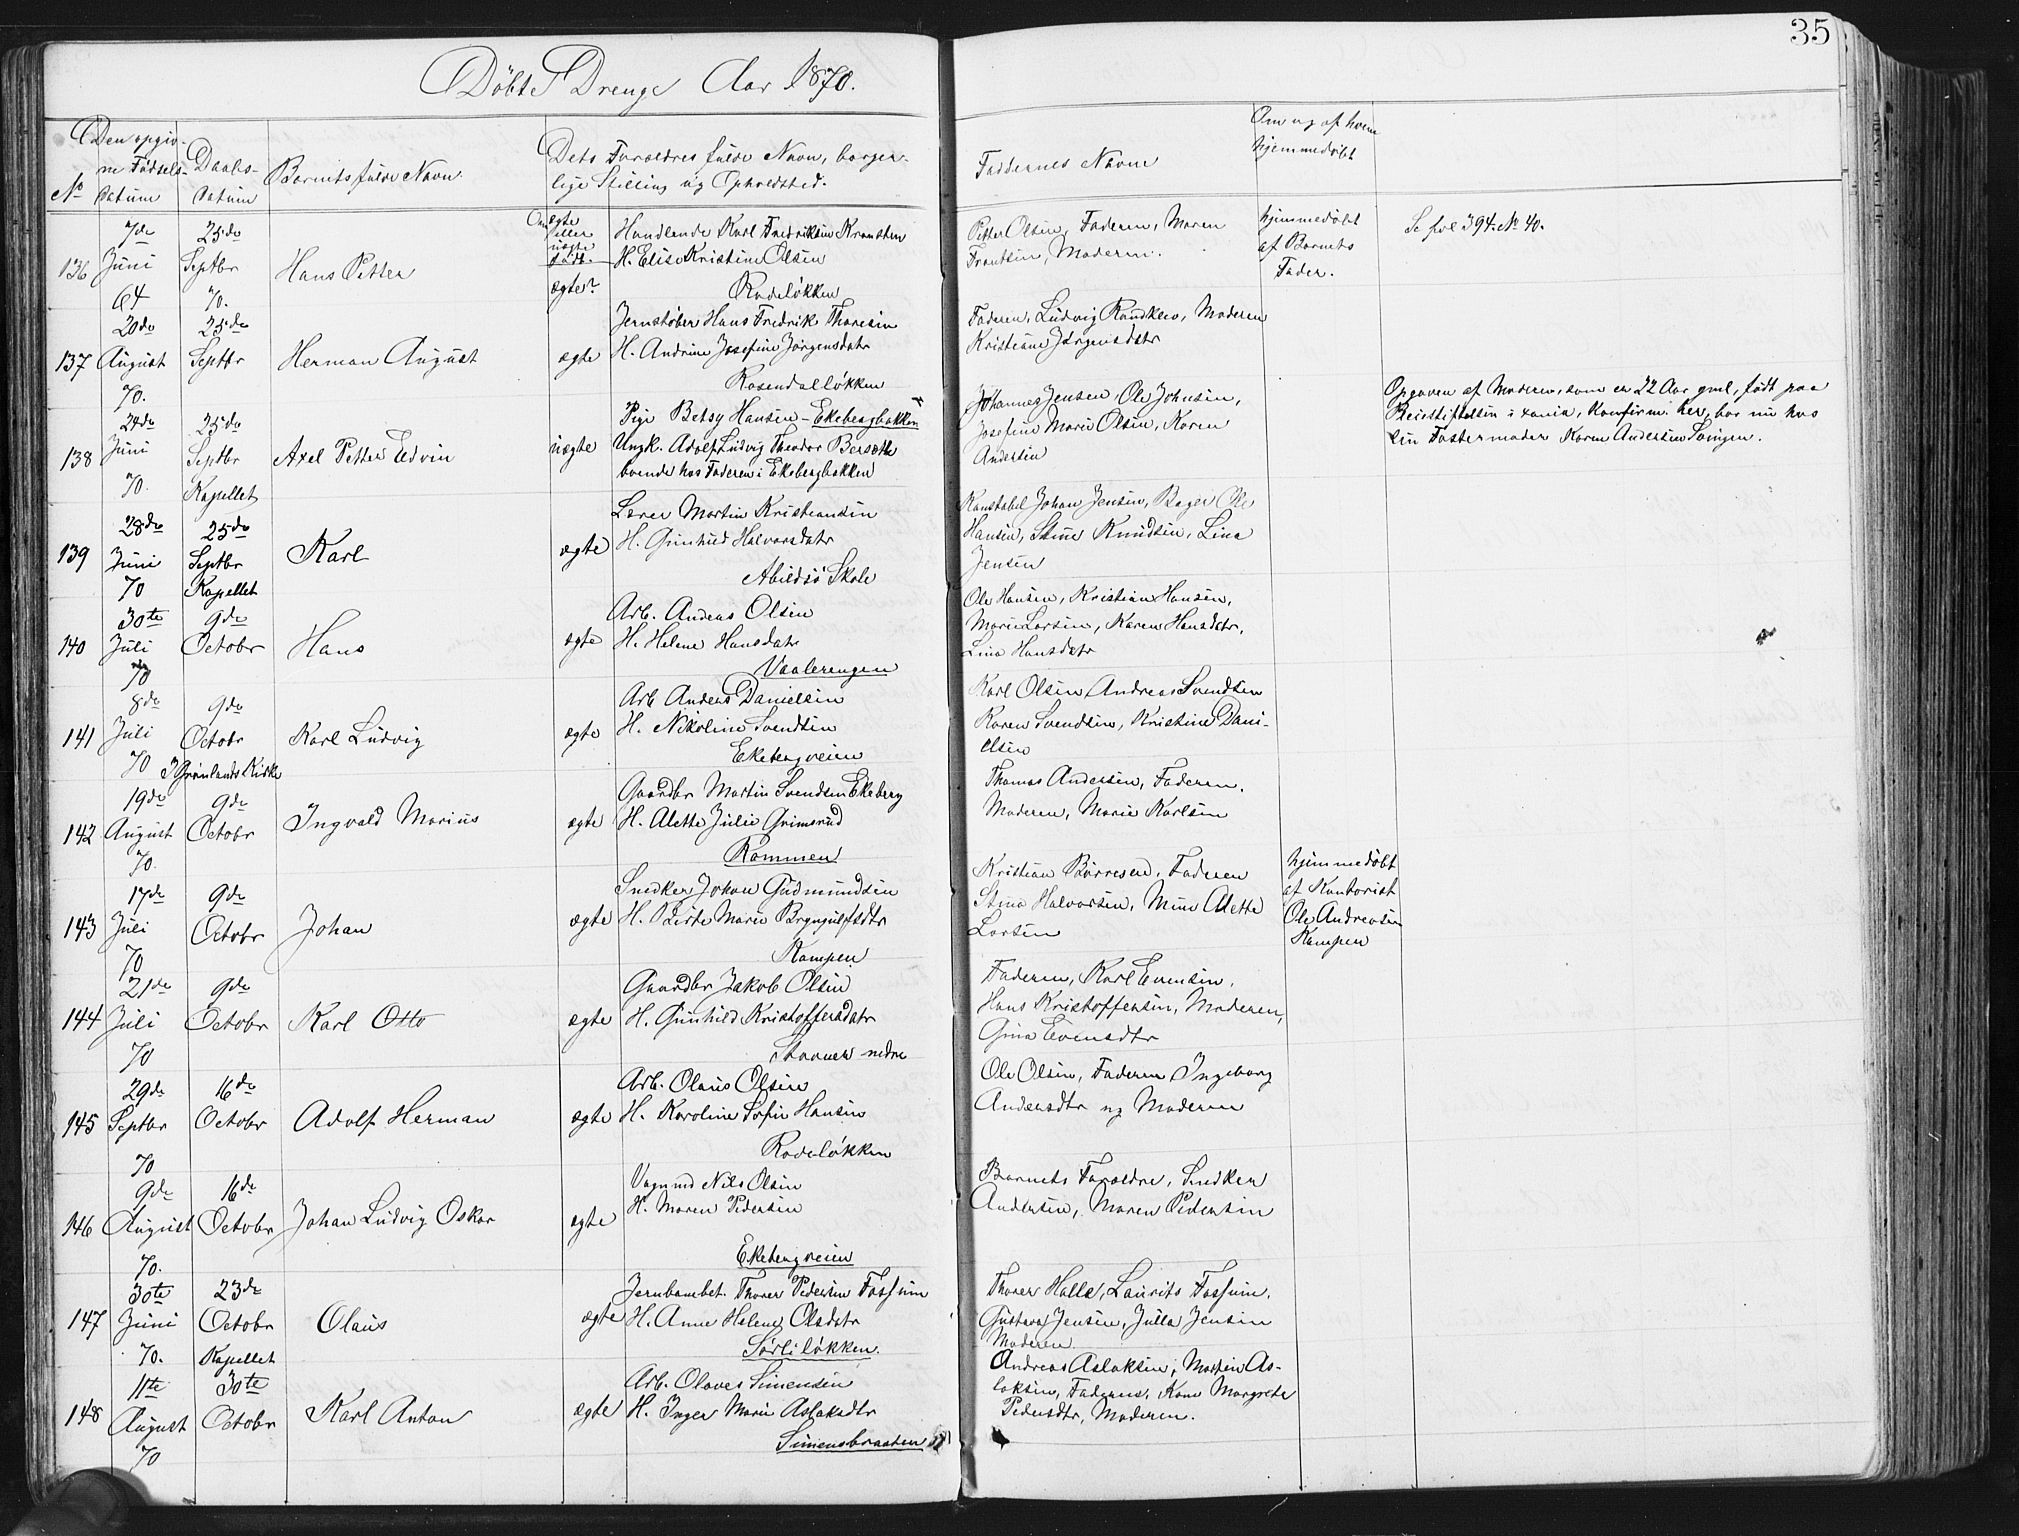 35
Döbte Drenge Aar 1870.
No
Den opgiv-
ne Fødsels-
datum
Daabs-
datum
Barnets fulde Navn.
Om ægte
eller
uægte
født.
Dets Forældres fulde Navn, borger-
lige Stilling og Opholdsted.
Faddernes Navne
Om og af hvem
hjemmedøbt
136
7de
Juni
64
25de
Septbr
70.
Hans Petter
ægte?
Handlende Karl Fredriksen Kransten
H. Elise Kristine Olsen
Rodeløkken
Petter Olsen, Faderen, Maren
Frantsen, Moderen.
hjemmedøbt
af Barnets
Fader.
Se fol 394. No 40.
137
20de
August
70.
25de
Septbr
Herman August
ægte
Jernstøber Hans Fredrik Thoresen
H. Andrine Josefine Jørgensdatr
Rosendalløkken
Faderen, Ludvig Randklev, Moderen
Kristiane Jørgensdatr
138
24de
Juni
70.
25de
Septbr
Kapellet
Axel Petter Edvin
uægte
Pige Betsy Hansen - Ekebergbakken
Ungk. Adolf Ludvig Theodor Bersæthe
boende hos Faderen i Ekebergbakken
Johannes Jensen, Ole Johnsen,
Josefine Marie Olsen, Karen
Andersen
Opgaven af Moderen, som er 22 Aar gml, født paa
i xania, Konfirm. her, bor nu hos
sin Fostermoder Karen Andersen Svingen.
139
28de
Juni
70
25de
Septbr
Kapellet
Karl
ægte
Lærer Martin Kristiansen
H. Gunhild Halvorsdatr
Abildsö Skole
Konstabel Johan Jensen, Bager Ole
Hansen, Stine Knudsen, Lina
Jensen
140
30te
Juli
70
9de
Octobr
Hans
ægte
Arb. Andreas Olsen
H. Helene Hansdatr
Vaalerengen
Ole Hansen, Kristian Hansen,
Marie Larsen, Karen Hansdatr,
Lina Hansdatr
141
8de
Juli
70
9de
Octobr
I Grønlands Kirke
Karl Ludvig
ægte
Arb Anders Danielsen
H. Nikoline Svendsen
Ekebergveien
Karl Olsen, Andreas Svendsen
Karen Svendsen, Kristine Dani-
elsen
142
19de
August
70.
9de
Octobr
Ingvald Marius
ægte
Gaardbr Martin Svendsen Ekeberg
H. Alette Julie Grimsrud
Rommen
Thomas Andersen, Faderen,
Moderen, Marie Karlsen
143
17de
Juli
70
9de
Octobr
Johan
ægte
Snedker Johan Gudmundsen
H. Birte Marie Brynjulfsdtr
Kampen
Kristian Børresen, Faderen
Stina Halvorsen, Mine Alette
Larsen
hjemmedøbt
af Kontorist
Ole Andreasen
Kampen
144
21de
Juli
70
9de
Octobr
Karl Otto
ægte
Gaardbr Jakob Olsen
H. Gunhild Kristoffersdatr
Stovner nedre
Faderen, Karl Evensen,
Hans Kristoffersen, Moderen,
Gina Evensdtr
145
29de
Septbr
70
16de
Octobr
Adolf Herman
ægte
Arb. Olaus Olsen
H. Karoline Sofie Hansen
Rodeløkken
Ole Olsen, Faderen Ingeborg
Andersdtr og Moderen
146
9de
August
70.
16de
Octobr
Johan Ludvig Oskar
ægte
Vognmd Nils Olsen
H. Maren Pedersen
Ekebergveien
Barnets Forældre, Snedker
Andersen, Maren Pedersen
147
30te
Juni
70.
23de
Octobr
Kapellet
Olaus
ægte
Jernbanebet. Thorer Pedersen Fossum
H. Anne Helene Olsdatr
Sørliløkken.
Thorer Halle, Laurits Fossum,
Gustava Jensen, Julla Jensen
Moderen
148
11te
August
70
30te
Octobr
Karl Anton
ægte
Arb. Olaves Simensen
H. Inger Marie Aslaksdtr
Simensbraaten
Andreas Aslaksen, Martin As-
laksen, Faderen, Kone Margrete
Pedersdtr, Moderen.